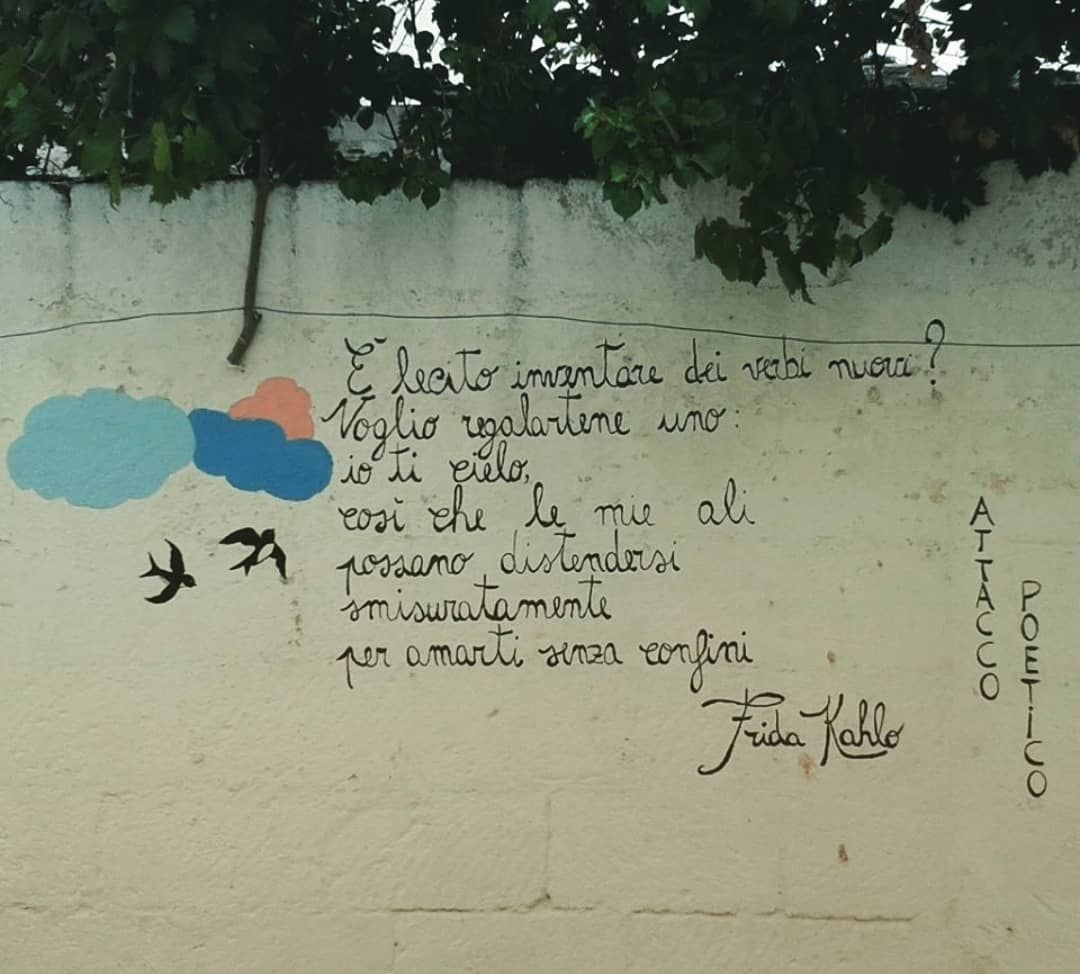 È lecito inventare dei verbi nuovi?
Voglio regalartene uno:
io ti cielo,
così che le mie ali
possano distendersi
smisuratamente
per amarti senza confini
Frida Kahlo
ATTACCO
POETICO